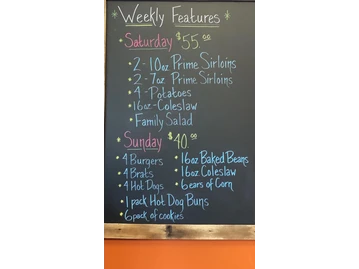 * Weekly Features *
• Saturday $55.00
• 2-10oz Prime Sirloins
• 2-7oz Prime Sirloins
• 4-Potatoes
• 16oz-Coleslaw
• Family Salad
• Sunday $40.00
• 4 Burgers • 16oz Baked Beans
• 4 Brats • 16oz Coleslaw
• 4 Hot Dogs • 6 ears of Corn
• 1 pack Hot Dog Buns
• 6 pack of cookies